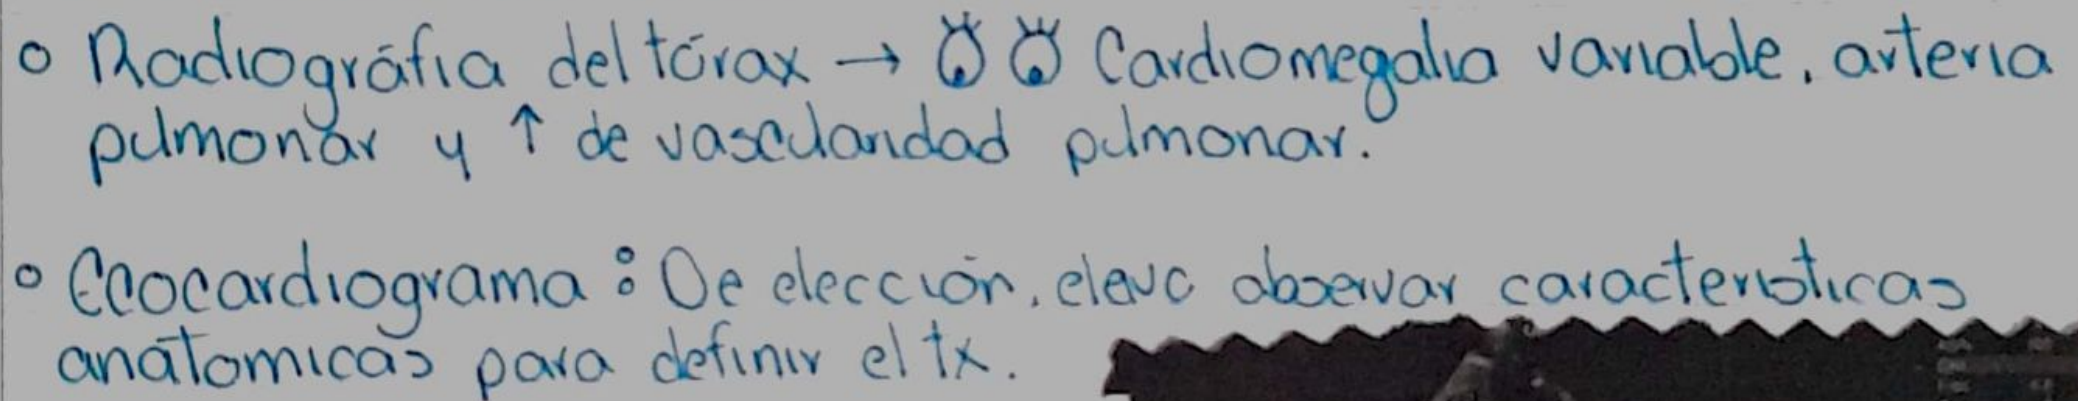 ○ Radiográfia del tórax → Cardiomegalia variable, arteria
pulmonar y ↑ de vascularidad pulmonar.
○ Ecocardiograma: De elección, observar caracteristicas
anátomicas para definir el tx.